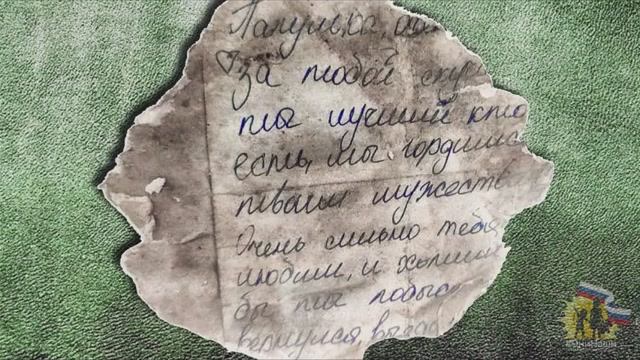 Папулька,
♡ За тобой
ты лучший кто
есть, мы гордимся
твоим мужеств
Очень сильно тебя
любим, и хотим
бы ты побыс
вернулся,